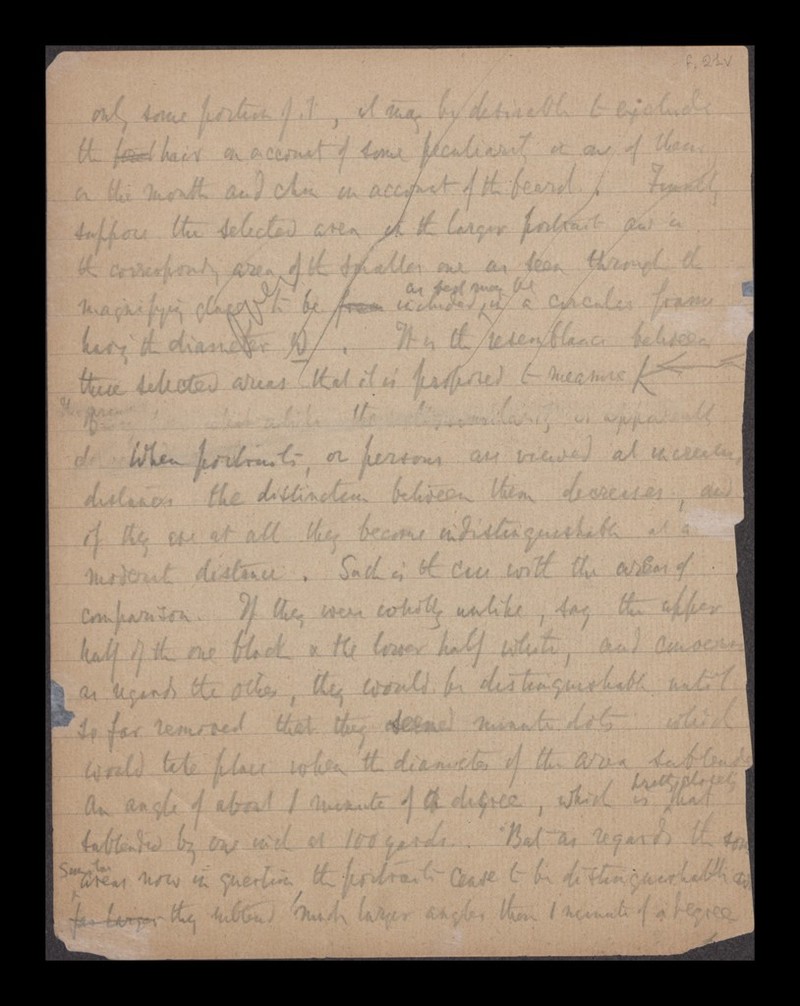 f. 22v
only some portion of it, it may be desirable to exclude
the hair on account of some peculiarity in one of them
or the mouth and chin on account of the beard. Finally
suppose the selected area in the larger portrait and in
the corresponding area of the smaller one as seen through the
magnifying glass to be from included, as best may be in a circular frame
having the diameter D. It is the resemblance between
these selected areas that it is proposed to measure
is apparently
When portraits, or persons are viewed at increasing
distances the distinction between them decreases, and
if they are at all they become indistinguishable at a
moderate distance. Such is the case with the areas of
comparison. If they were wholly unlike, say the upper
half of the one black & the lower half white, and conversely
as regards the other, they would be distinguishable until
so far removed that they seemed minute dots which
would take place when the diameter of the area subtends
an angle of about 1 minute of a degree, which is pretty closely that
subtended by one inch at 100 yards. But as regards the
Similar areas now in question, the portraits cease to be distinguishable
far larger they subtend much larger angles than 1 minute of a degree